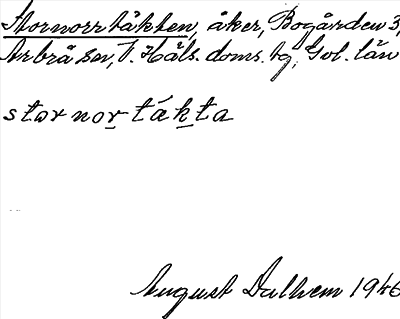 Stornorrtäkten, åker, Bogården 3,
Arbrå sn, V. Häls. doms. tg, Gvl. län
stornortákta
August Dalhem 1946